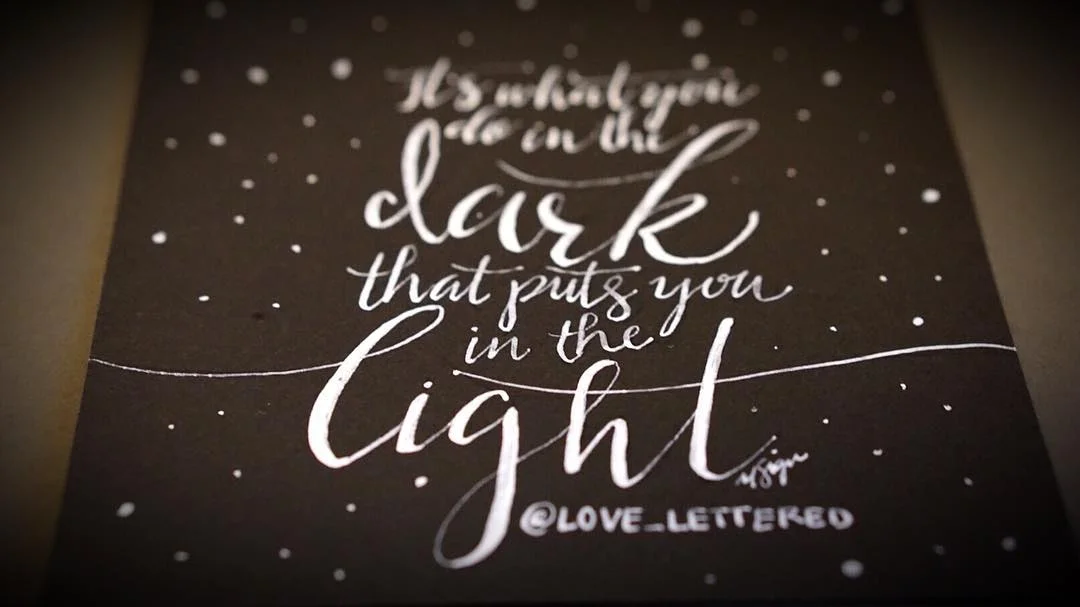 It's what you
do in the
dark
that puts you
in the
light
@LOVE_LETTERED